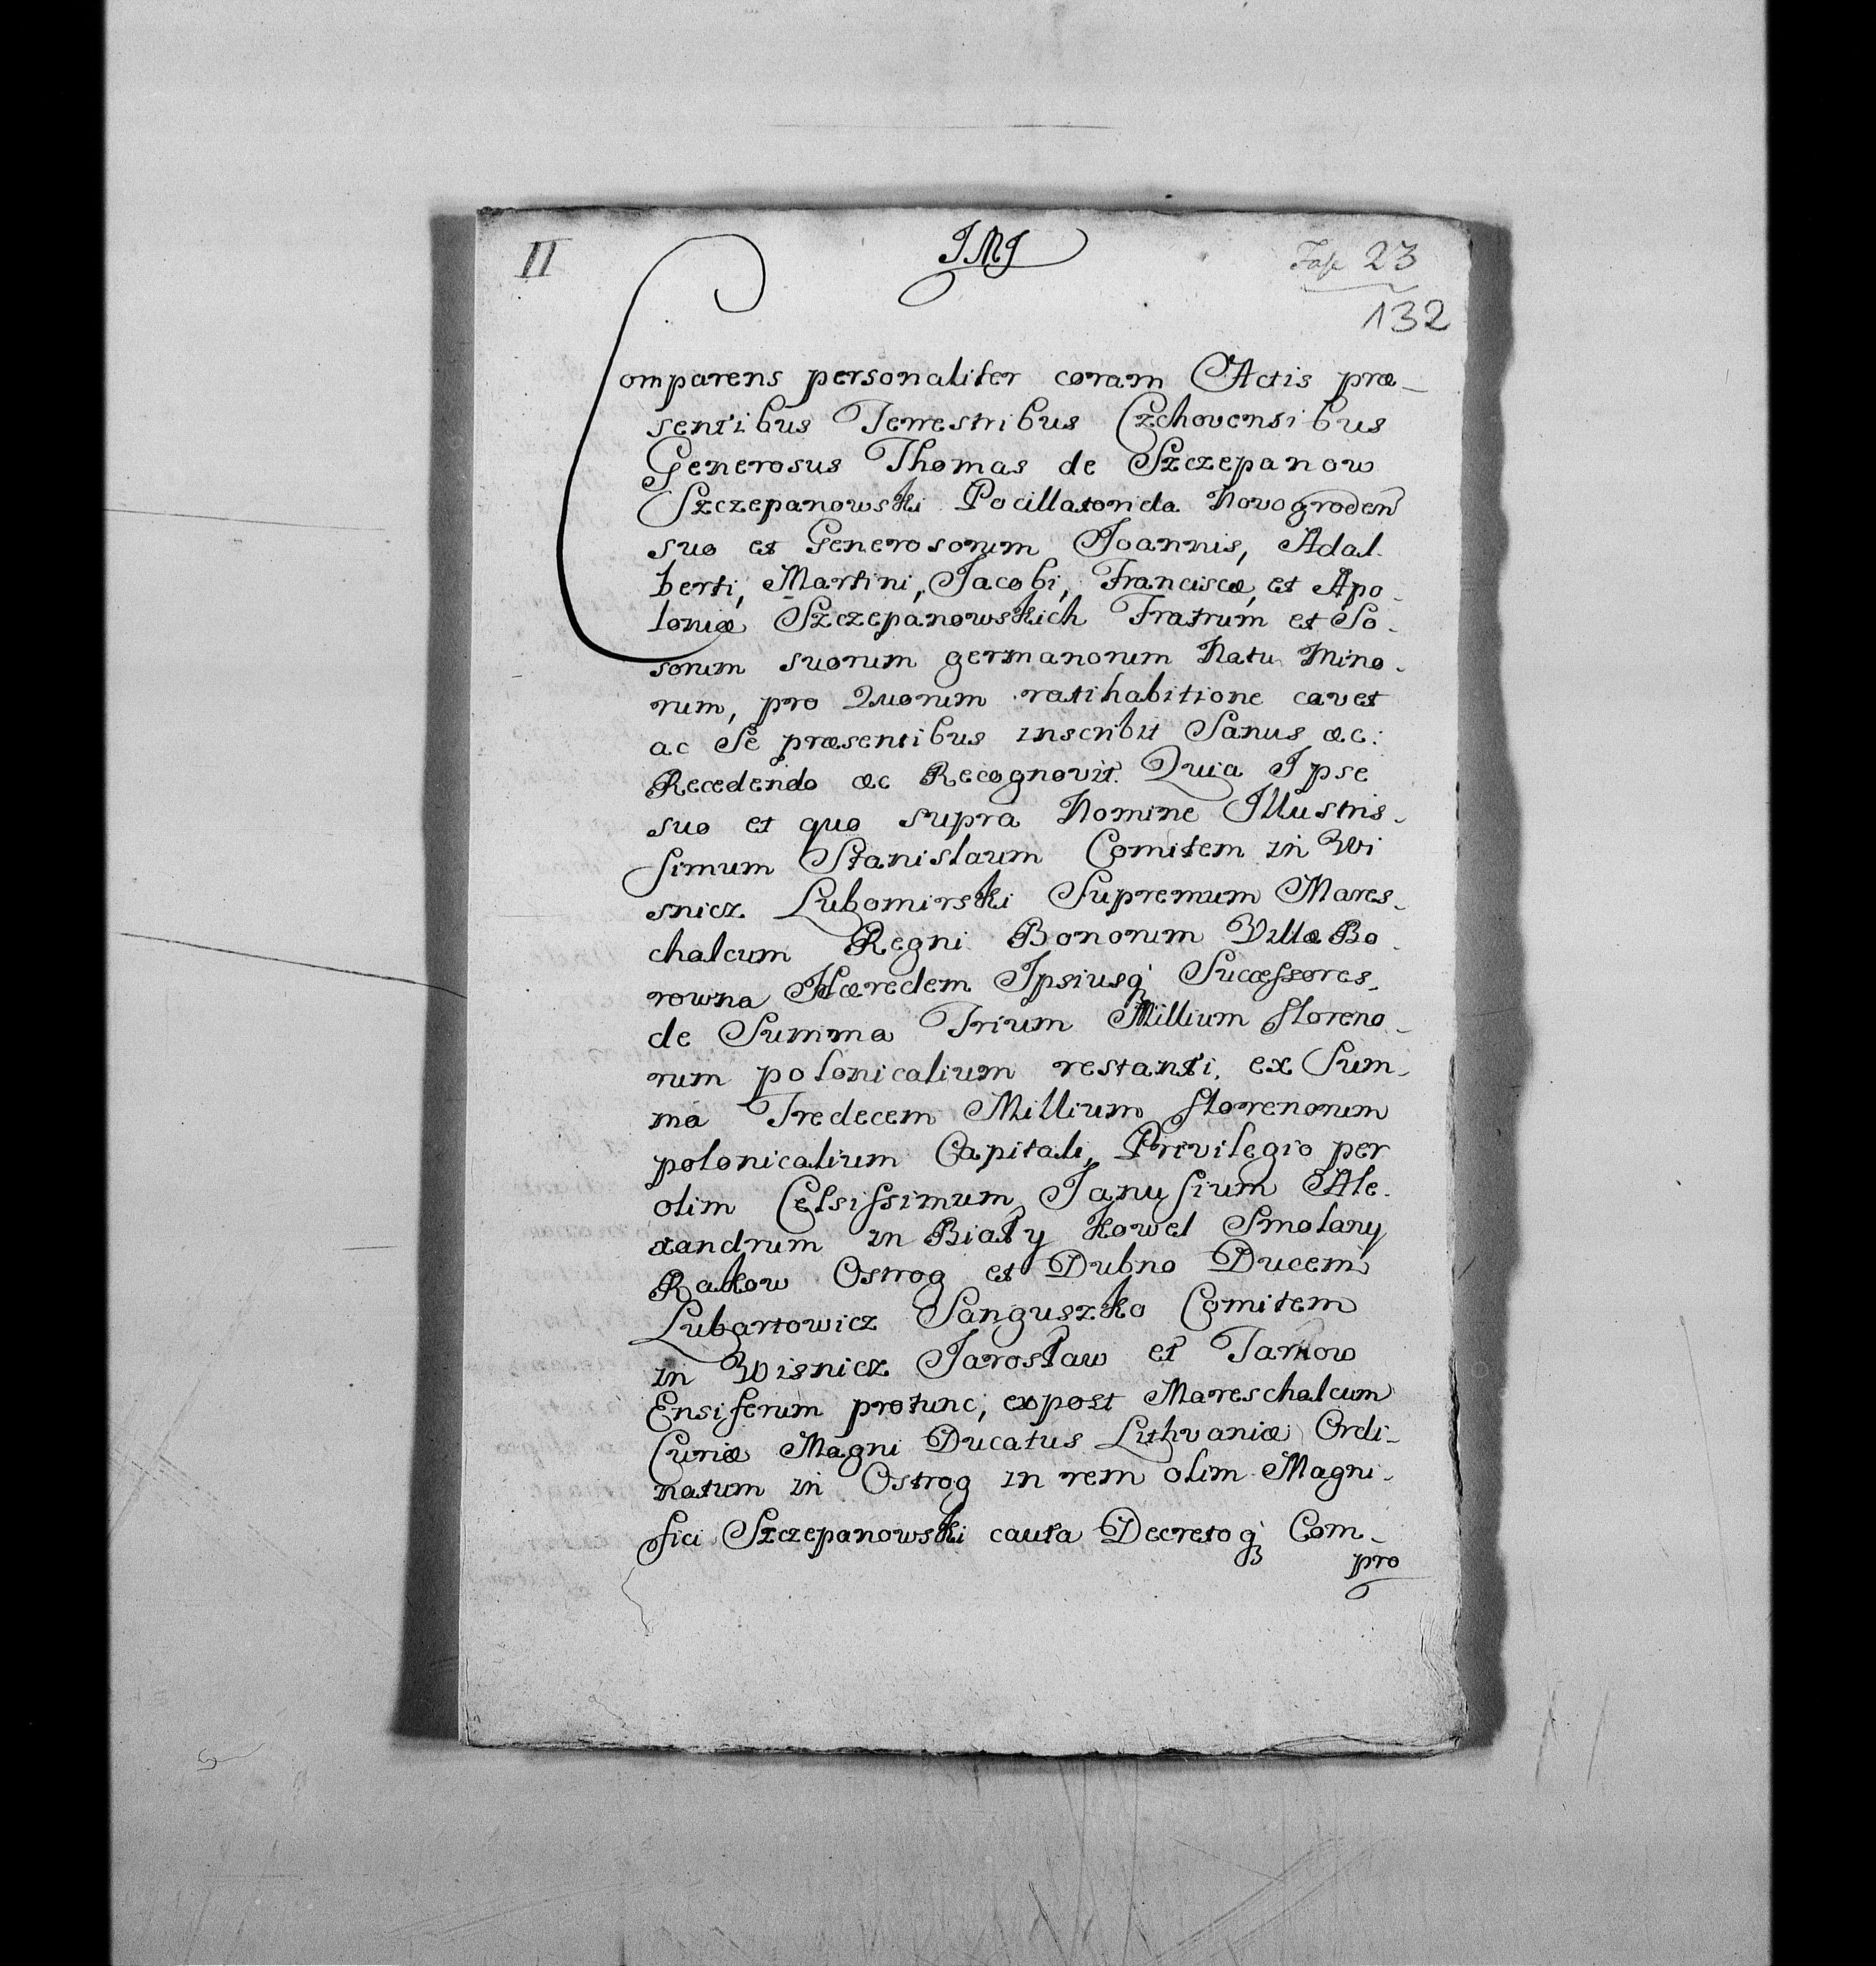 II
JMJ
Fasc 23
132
Comparens personaliter coram Actis præ-
sentibus Terrestribus Czchovensibus
Generosus Thomas de Szczepanow
Szczepanowski Pocillatorida Novogroden̄
suo et Generosorum Joannis, Adal-
berti, Martini, Jacobi, Franciscæ, et Apo-
loniæ Szczepanowskich Fratrum et So-
rorum suorum germanorum Natu Mino-
rum, pro Quorum ratihabitione cavet
ac Se præsentibus inscribit Sanus &c:
Recedendo &c Recognovit. Quia Ipse
suo et quo supra Nomine Illustris-
simum Stanislaum Comitem in Wi
snicz Lubomirski Supremum Mares-
chalcum Regni Bonorum Villæ Bo-
rowna Hæredem Ipsiusq́ Successores,
de Summa Trium Millium floreno-
rum polonicalium restanti, ex Sum-
mâ Tredecem Millium florenorum
polonicalium Capitali, Privilegio per
olim Celsissimum Janusium Ale-
xandrum in Biały Kowel Smolany
Rakow Ostrog et Dubno Ducem
Lubartowicz Sanguszko Comitem
in Wisnicz Jarosław et Tarnow
Ensiferum protunc, expost Mareschalcum
Curiæ Magni Ducatus Lithvaniæ Ordi-
natum in Ostrog in rem olim Magni-
fici Szczepanowski cauta Decretoq́ Com-
pro